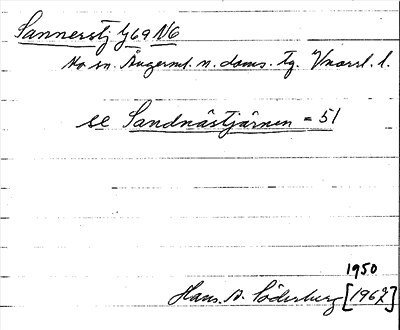 Sannerstj G69 NG
No sn. Ångerml. n. doms. tg. Vnorrl. l.
se Sandnästjärnen = 51
1950
Hans A. Söderberg [1967]